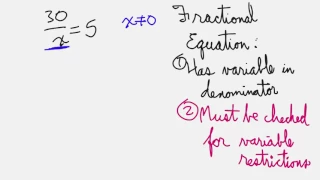 30/x = 5
x ≠ 0
Fractional
Equation:
① Has variable in
denominator
② Must be checked
for variable
restrictions